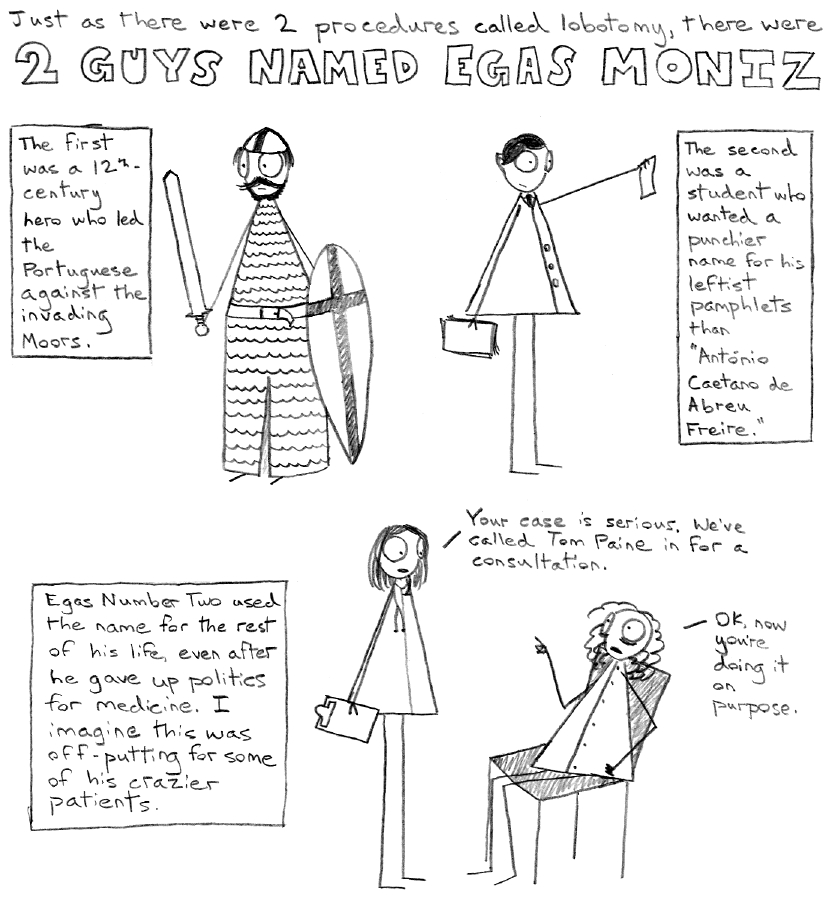 Just as there were 2 procedures called lobotomy, there were
2 GUYS NAMED EGAS MONIZ
The first
was a 12th-
century
hero who led
the
Portuguese
against the
invading
Moors.
The second
was a
student who
wanted a
punchier
name for his
leftist
pamphlets
than
"António
Caetano de
Abreu
Freire."
Your case is serious. We've
called Tom Paine in for a
consultation.
Egas Number Two used
the name for the rest
of his life, even after
he gave up politics
for medicine. I
imagine this was
off-putting for some
of his crazier
patients.
OK, now
you're
doing it
on
purpose.